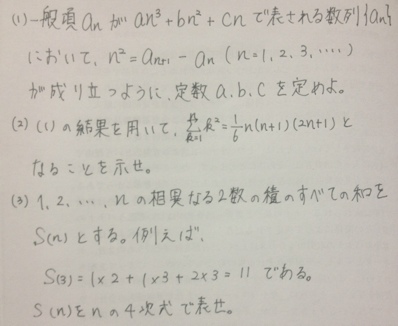 (1) 一般項 an が an³+bn²+cn で表される数列{an}
において、n²=an+1-an (n=1,2,3,....)
が成り立つように、定数 a.b.c を定めよ。
(2) (1) の結果を用いて、Σ[k=1→n] k²=1/6 n(n+1)(2n+1) と
なることを示せ。
(3) 1, 2, …, n の相異なる2数の積のすべての和を
S(n) とする。例えば、
S(3)=1×2+1×3+2×3=11 である。
S(n)をnの4次式で表せ。